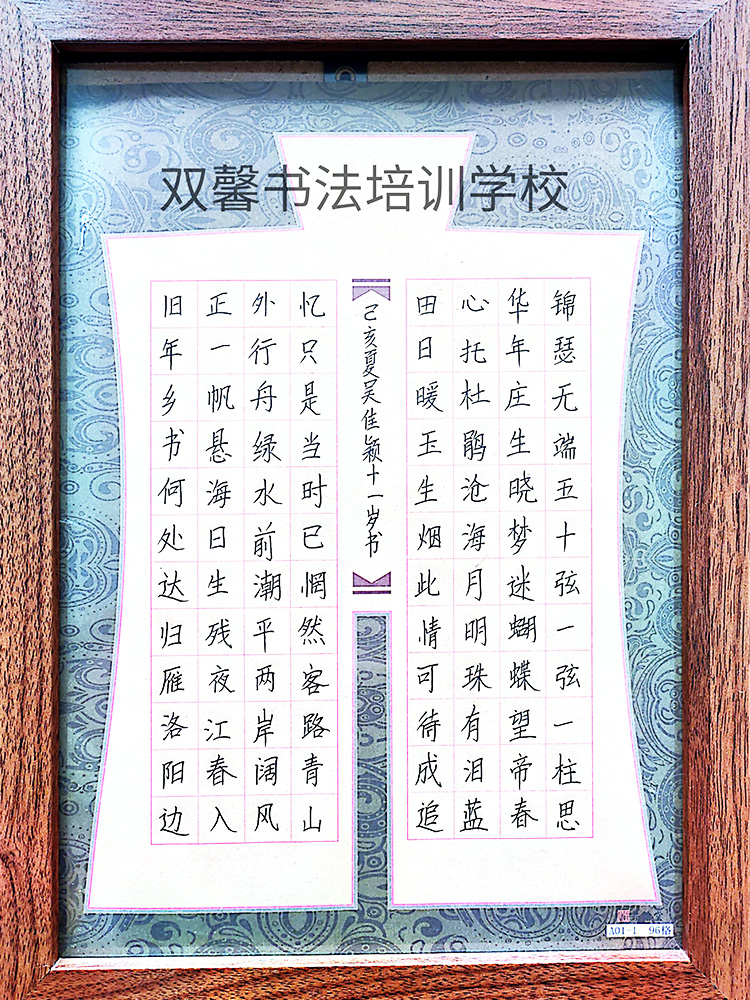 双馨书法培训学校
锦瑟无端五十弦一弦一柱思
华年庄生晓梦迷蝴蝶望帝春
心托杜鹃沧海月明珠有泪蓝
田日暖玉生烟此情可待成追
己亥夏吴佳颖十一岁书
忆只是当时已惘然客路青山
外行舟绿水前潮平两岸阔风
正一帆悬海日生残夜江春入
旧年乡书何处达归雁洛阳边
A01-1 96格